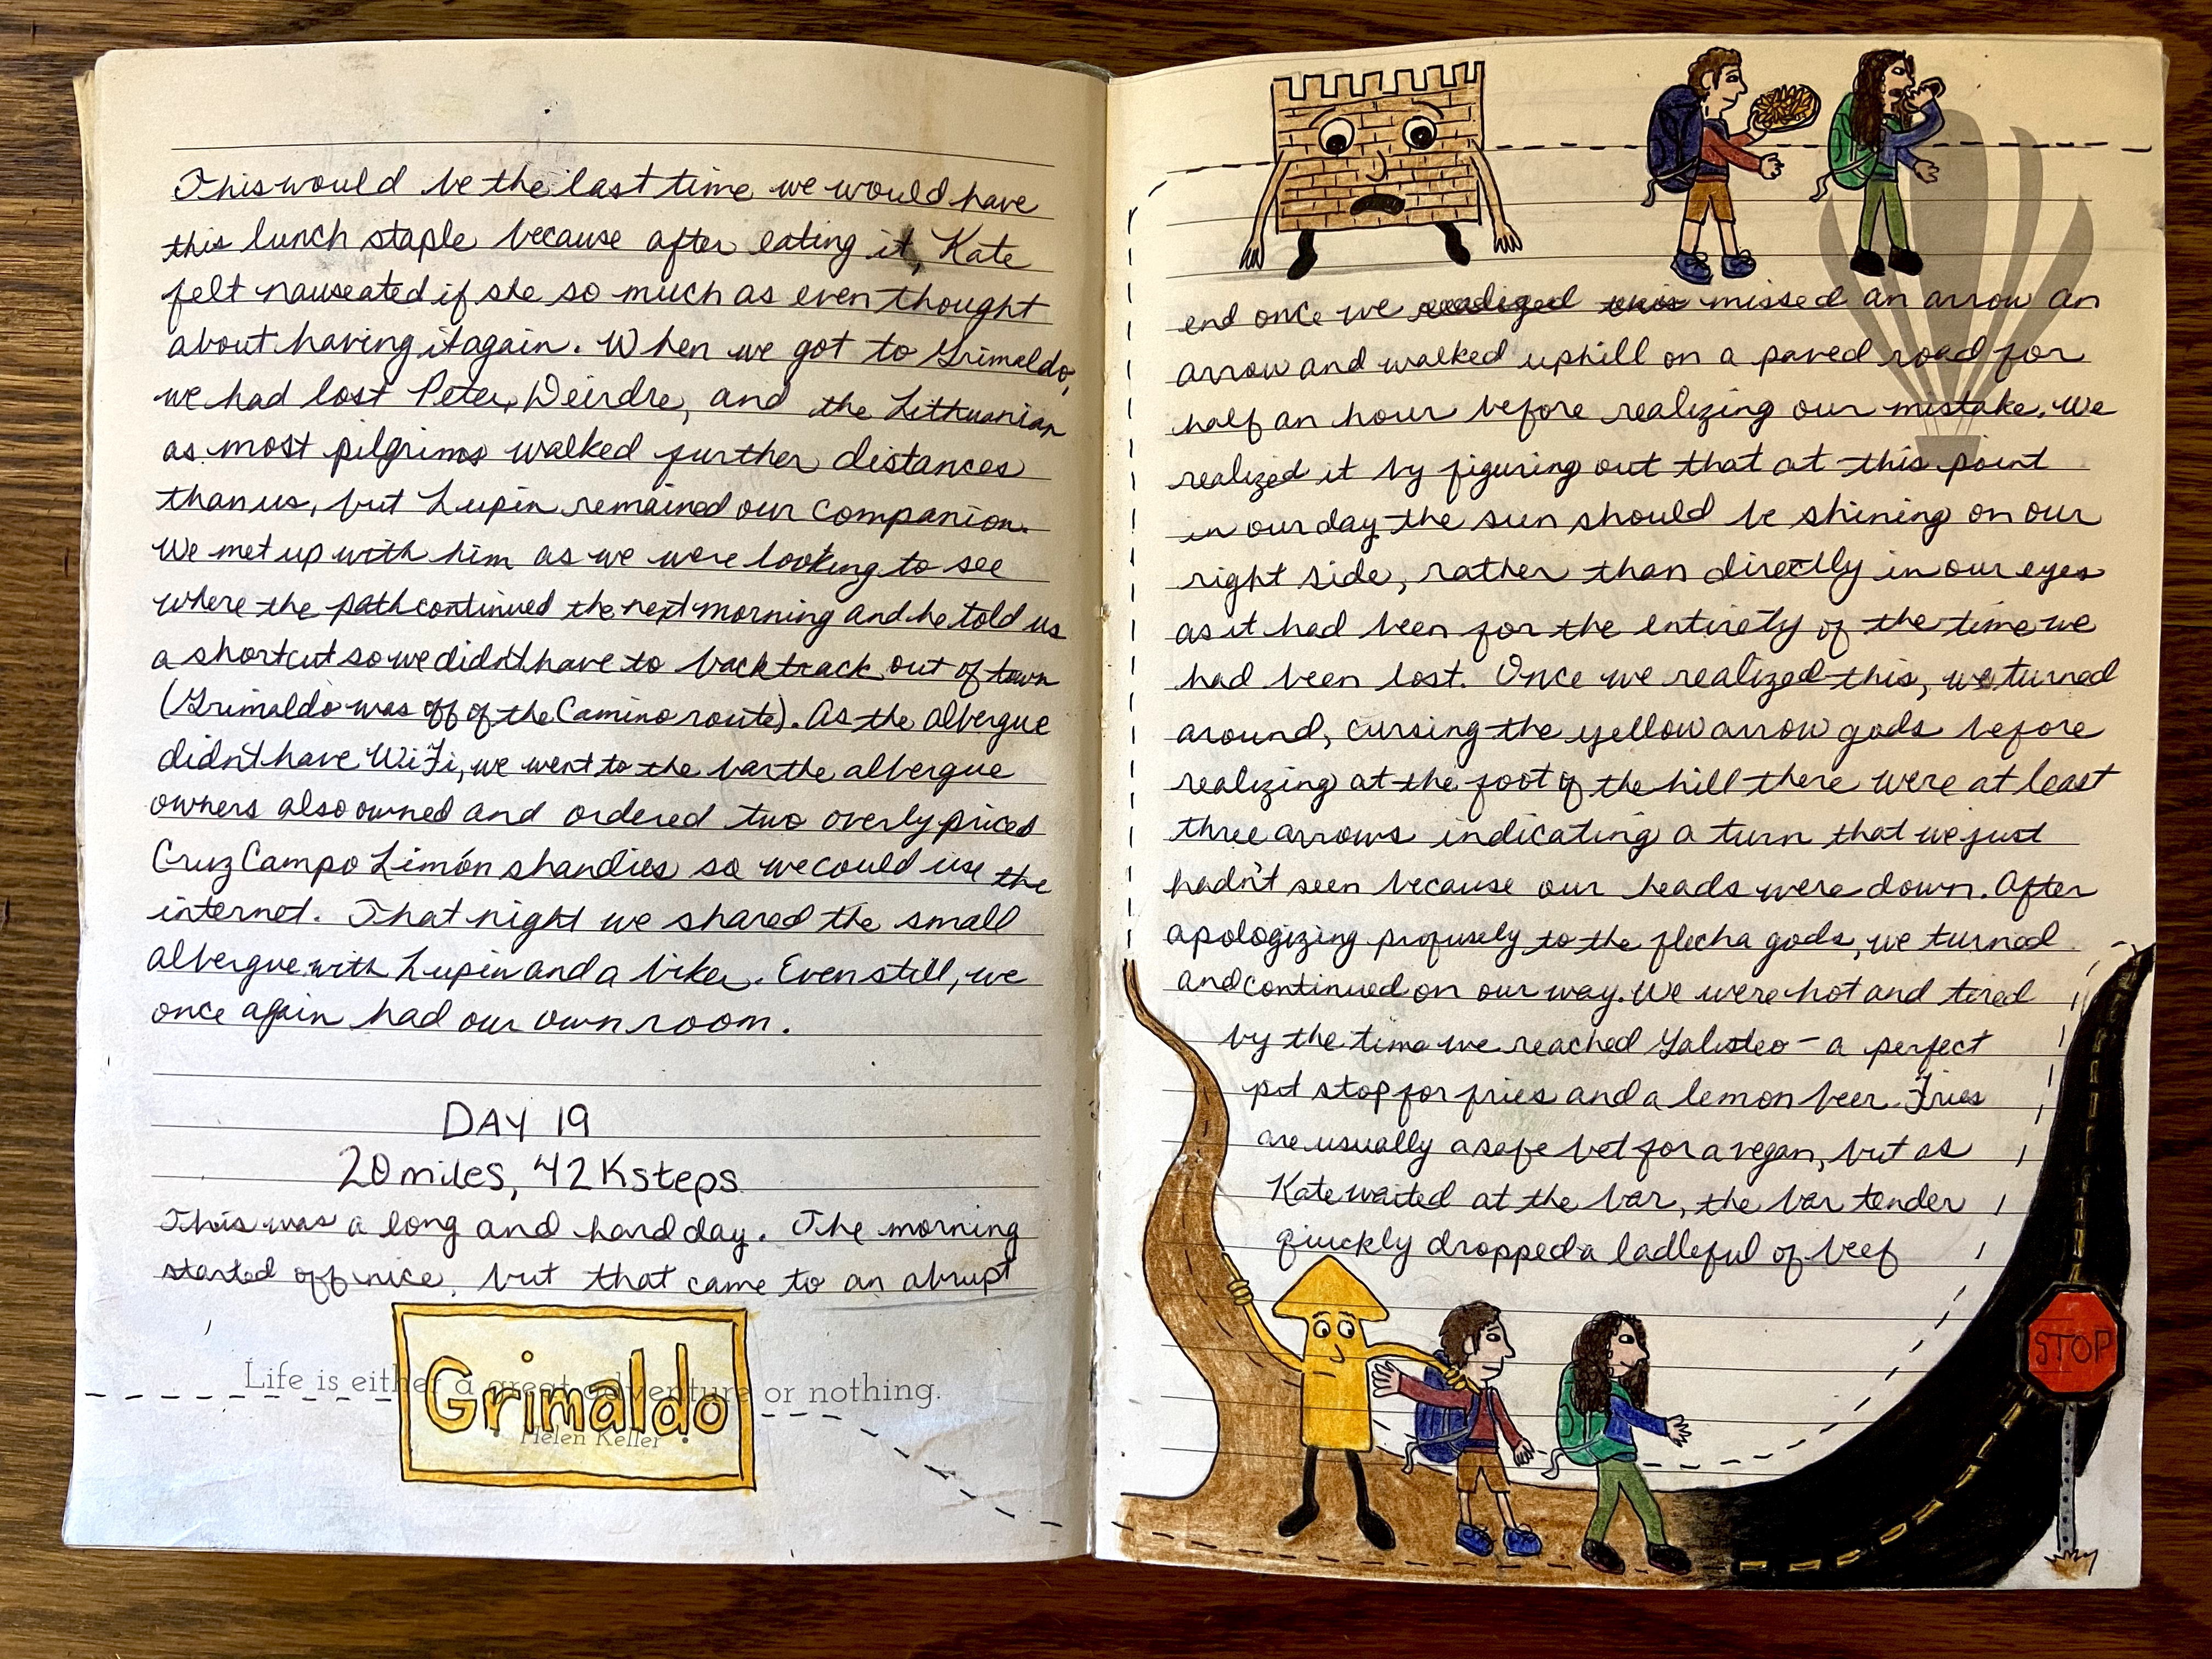 This would be the last time we would have
this lunch staple because after eating it, Kate
felt nauseated if she so much as even thought
about having it again. When we got to Grimaldo,
we had lost Peter, Deirdre, and the Lithuanian
as most pilgrims walked further distances
than us, but Lupin remained our companion.
We met up with him as we were looking to see
where the path continued the next morning and he told us
a shortcut so we didn't have to backtrack out of town
(Grimaldo was off of the Camino route). As the albergue
didn't have WiFi, we went to the bar the albergue
owners also owned and ordered two overly prices
Cruz Campo Limón shandies so we could use the
internet. That night we shared the small
albergue with Lupin and a biker. Even still, we
once again had our own room.
DAY 19
20 miles, 42K steps
This was a long and hard day. The morning
started off nice, but that came to an abrupt
Life is either a great adventure or nothing.
Grimaldo
Helen Keller
end once we realized this missed an arrow an
arrow and walked uphill on a paved road for
half an hour before realizing our mistake. We
realized it by figuring out that at this point
in our day the sun should be shining on our
right side, rather than directly in our eyes
as it had been for the entirety of the time we
had been lost. Once we realized this, we turned
around, cursing the yellow arrow gods before
realizing at the foot of the hill there were at least
three arrows indicating a turn that we just
hadn't seen because our heads were down. After
apologizing profusely to the flecha gods, we turned
and continued on our way. We were hot and tired
by the time we reached Galisteo - a perfect
pit stop for fries and a lemon beer. Fries
are usually a safe bet for a vegan, but as
Kate waited at the bar, the bar tender
quickly dropped a ladleful of beef
STOP